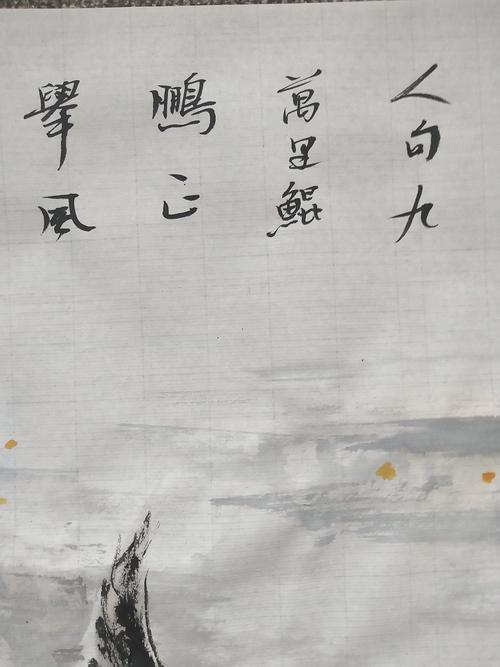 人句九
萬里鯤
鵬正
擧風